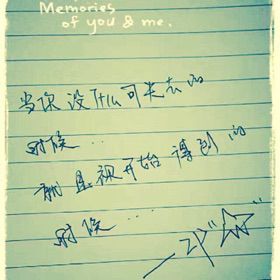 Memories
of you & me.
当你没什么可失去的
时候...
就是视开始得到的
时候...